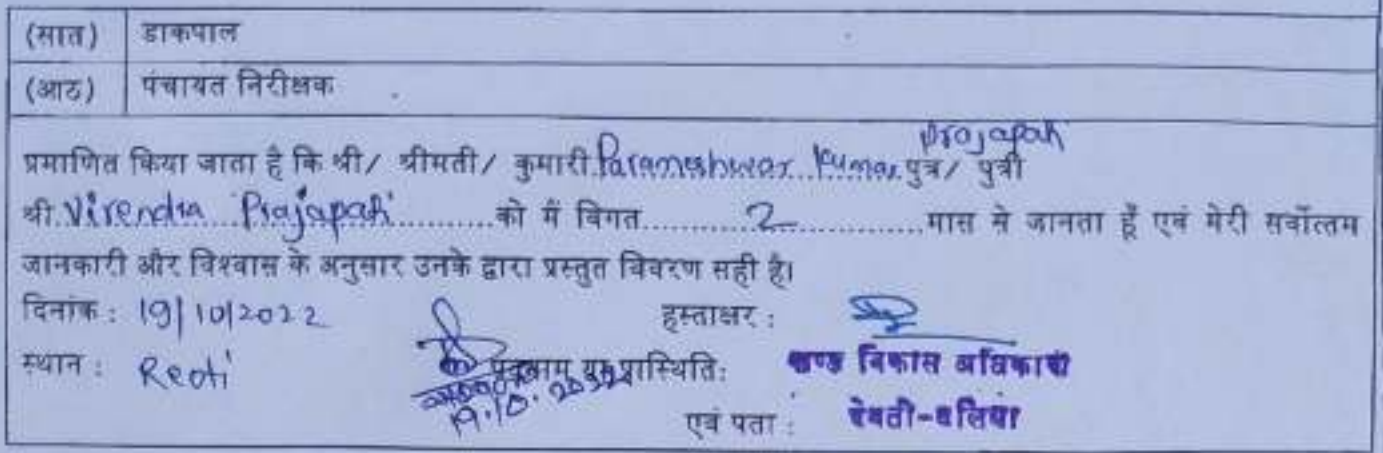 (सात) डाकपाल
(आठ) पंचायत निरीक्षक
Prajapati
प्रमाणित किया जाता है कि श्री/ श्रीमती/ कुमारी Parameshwar Kumar पुत्र/ पुत्री
श्री Virendra Prajapati को मैं विगत 2 मास से जानता हूँ एवं मेरी सर्वोत्तम
जानकारी और विश्वास के अनुसार उनके द्वारा प्रस्तुत विवरण सही है।
दिनांक : 19/10/2022 हस्ताक्षर :
स्थान : Reoti पदनाम प्रास्थिति: खण्ड विकास अधिकारी
19.10.2022
एवं पता : रेवती-बलिया